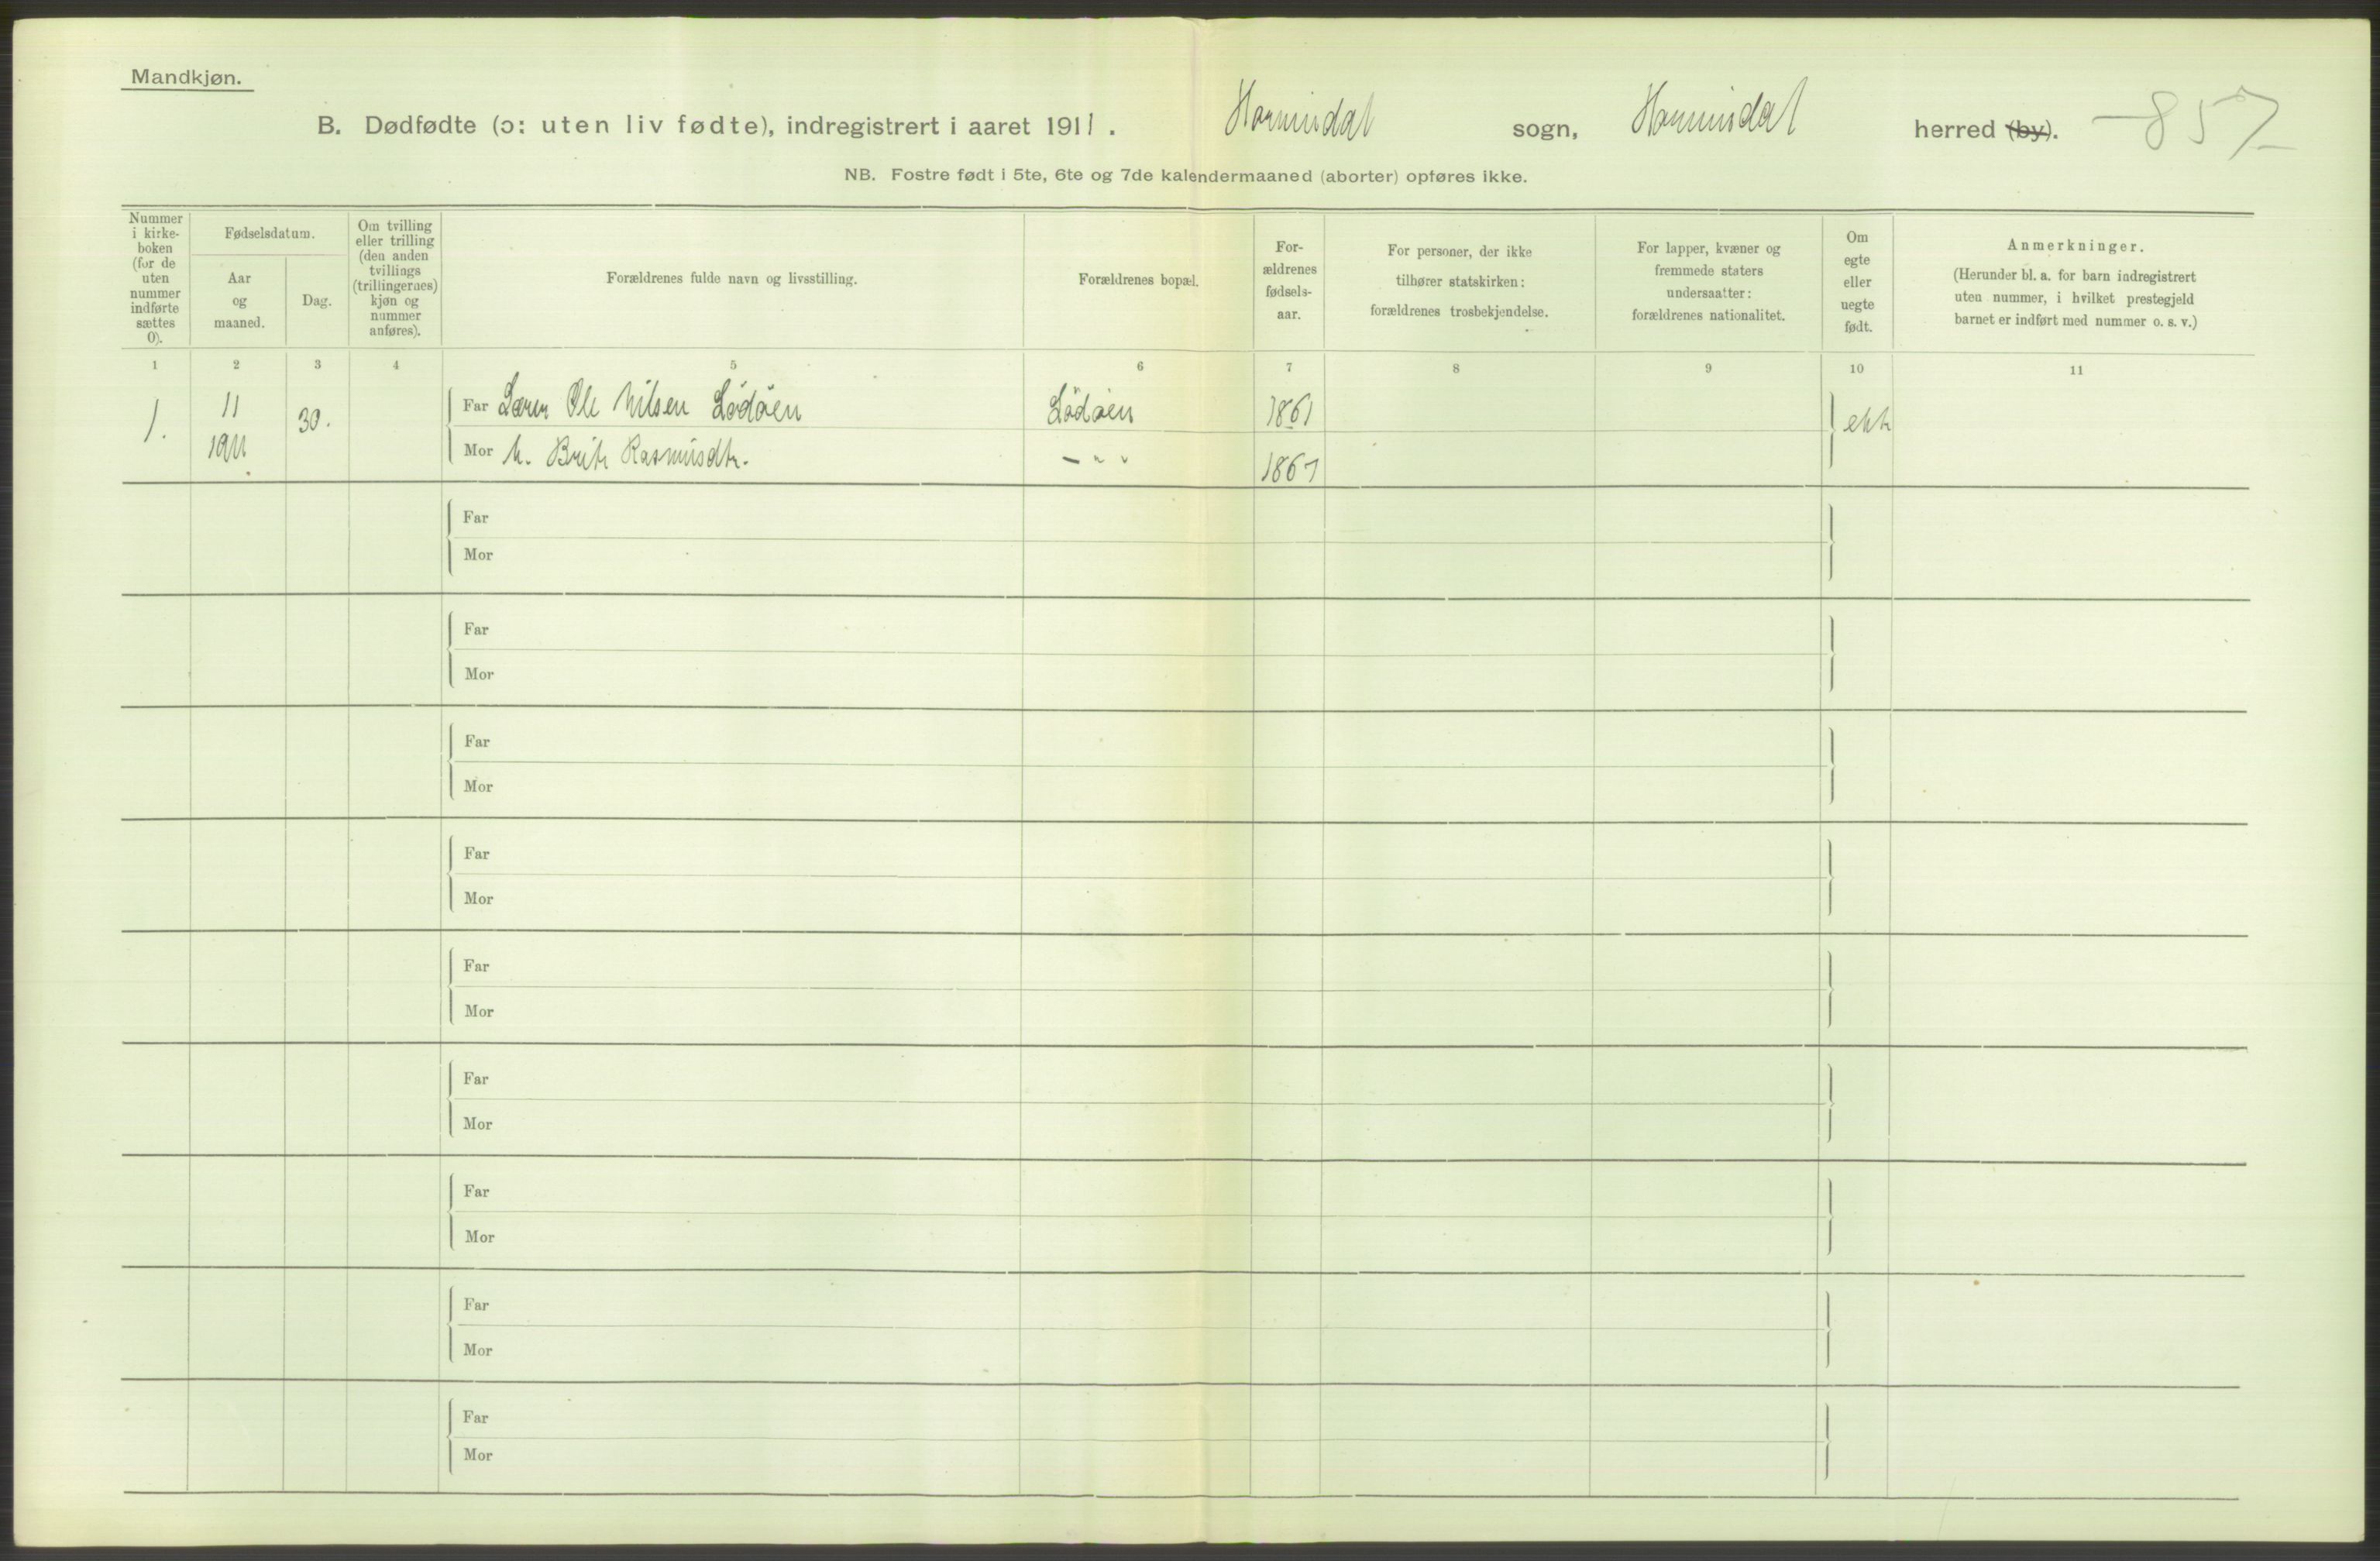 Mandkjøn.
B. Dødfødte (ɔ: uten liv fødte), indregistrert i aaret 1911. Hornindal sogn, Hornindal herred (by). 857
NB. Fostre født i 5te, 6te og 7de kalendermaaned (aborter) opføres ikke.
Nummer
i kirke-
boken
(for de
uten
nummer
indførte
sættes
0).
Fødselsdatum.
Aar
og
maaned.
Dag.
Om tvilling
eller trilling
(den anden
tvillings
(trillingernes)
kjøn og
nummer
anføres).
Forældrenes fulde navn og livsstilling.
Forældrenes bopæl.
For-
ældrenes
fødsels-
aar.
For personer, der ikke
tilhører statskirken:
forældrenes trosbekjendelse.
For lapper, kvæner og
fremmede staters
undersaatter:
forældrenes nationalitet.
Om
egte
eller
uegte
født.
Anmerkninger.
(Herunder bl. a. for barn indregistrert
uten nummer, i hvilket prestegjeld
barnet er indført med nummer o. s. v.)
1 2 3 4 5 6 7 8 9 10 11
1. 11 30. Far Lærer Ole Nilsen Lødøen Lødøen 1861 ekte
1911 Mor h. Brite Rasmusdtr. — " " 1867
Far
Mor
Far
Mor
Far
Mor
Far
Mor
Far
Mor
Far
Mor
Far
Mor
Far
Mor
Far
Mor